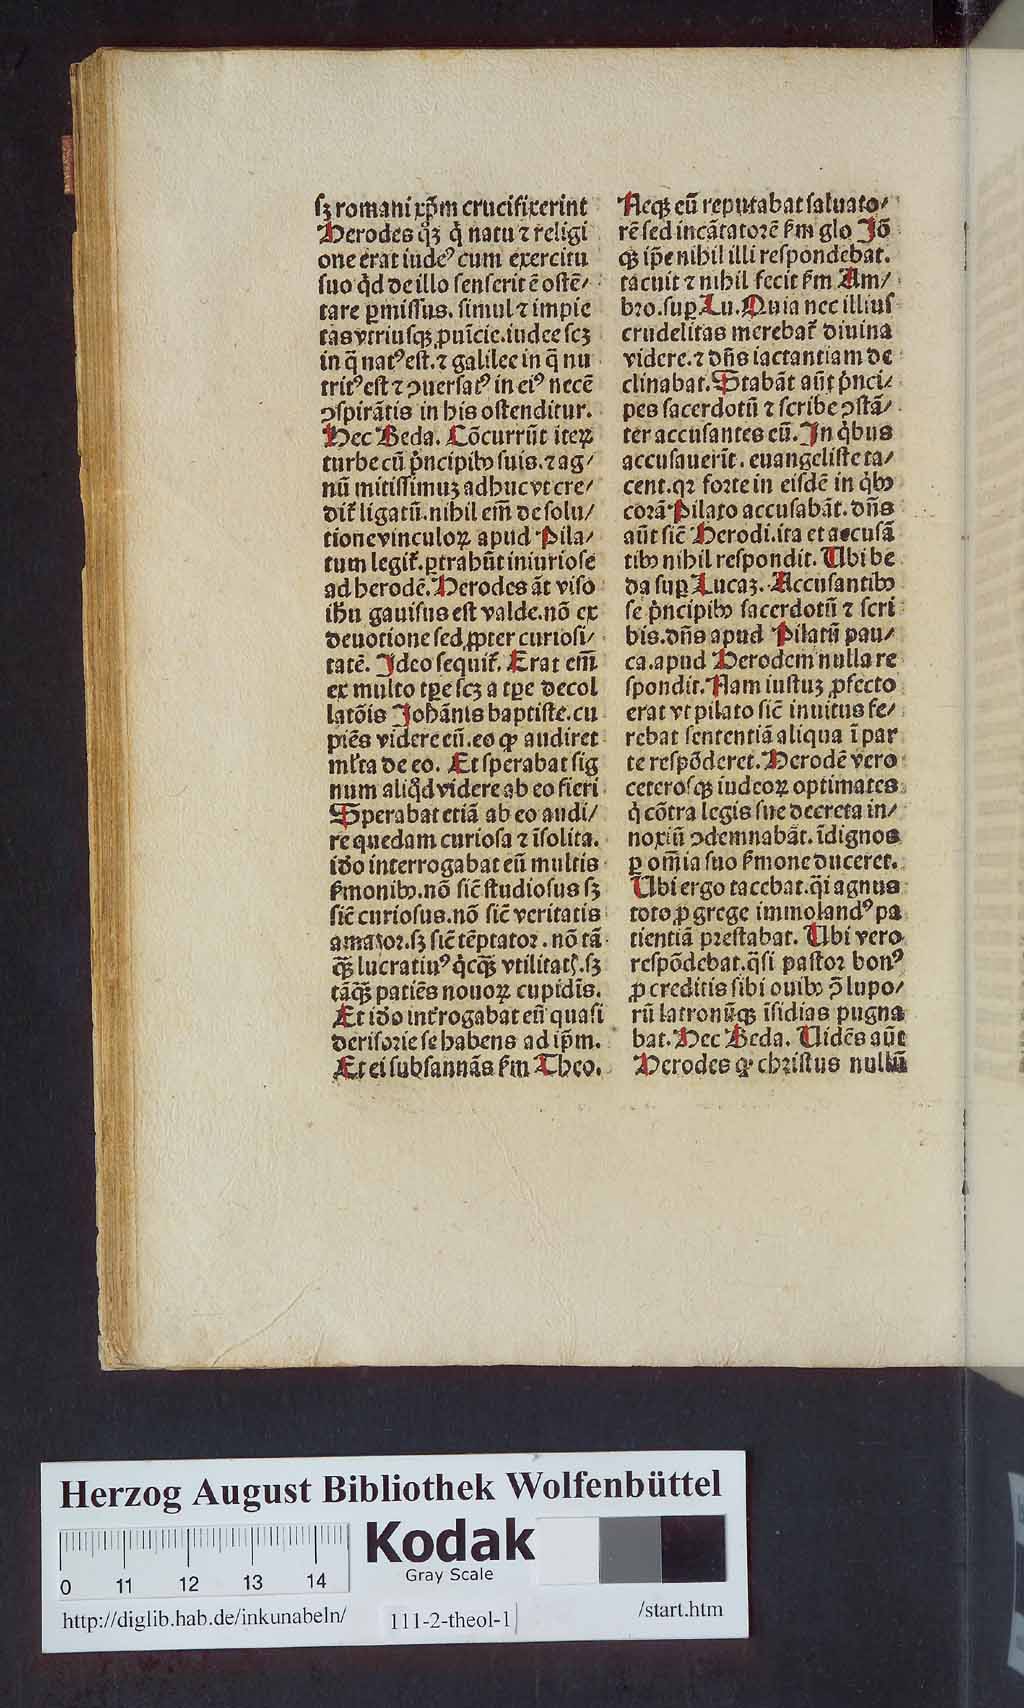 sꝫ romani xp̄m crucifixerint
Herodes qͦꝫ q̇ natu ⁊ religi
one erat iudeꝰ cum exercitu
suo qͥd de illo senserit ē ostē⸗
tare ꝑmissus. simul ⁊ impie
tas vtriusqꝫ ꝓuīcie. iudee scꝫ
in q̄ natꝰ est. ⁊ galilee in q̄ nu
tritꝰ est ⁊ ↄuersatꝰ in eiꝰ necē
ↄspirātis in his ostenditur.
Hec Beda. Cōcurrūt iteꝝ
turbe cū pͥncipibꝰ suis. ⁊ ag⸗
nū mitissimuꝫ adhuc vt cre⸗
dit᷑ ligatū. nihil em̄ de solu⸗
tione vinculoꝝ apud Pila⸗
tum legit᷑. ꝑtrahūt iniuriose
ad herodē. Herodes āt viso
ihū gauisus est valde. nō ex
deuotione sed ꝓpter curiosi⸗
tatē. Ideo sequit᷑. Erat em̄
ex multo tꝑe scꝫ a tꝑe decol
latōis Johānis baptiste. cu
piēs videre eū. eo ꝙ audiret
ml̓ta de eo. Et sperabat sig
num aliqͥd videre ab eo fieri
Sperabat etiā ab eo audi⸗
re quedam curiosa ⁊ īsolita.
iđo interrogabat eū multis
ẜmonibꝰ. nō sic̄ studiosus sꝫ
sic̄ curiosus. nō sic̄ veritatis
amator. sꝫ sic̄ tēptator. nō tā
qꝫ̄ lucratiuꝰ qͥcqꝫ̄ vtilitatꝭ. sꝫ
tāqꝫ̄ patiēs nouoꝝ cupidīs.
Et iđo int̓rogabat eū quasi
derisorie se habens ad ip̄m.
Et ei subsannās ẜm Theo.
Neqꝫ eū reputabat saluato⸗
rē sed incātatorē ẜm glo Jō
qꝫ ip̄e nihil illi respondebat.
tacuit ⁊ nihil fecit ẜm Am⸗
bro. suꝑ Lu. Quia nec illius
crudelitas merebat᷑ diuina
videre. ⁊ dn̄s iactantiam de
clinabat. Stabāt aūt pͥnci⸗
pes sacerdotū ⁊ scribe ↄstā⸗
ter accusantes eū. In qͥbus
accusauerīt. euangeliste ta⸗
cent. qꝛ forte in eisdē in qͥbꝰ
corā Pilato accusabāt. dn̄s
aūt sic̄ Herodi. ita et accusā
tibꝰ nihil respondit. Ubi be
da suꝑ Lucaꝫ. Accusantibꝰ
se pͥncipibꝰ sacerdotū ⁊ scri
bis. dn̄s apud Pilatū pau⸗
ca. apud Herodem nulla re
spondit. Nam iustuꝫ ꝓfecto
erat vt pilato sic̄ inuitus fe⸗
rebat sententiā aliqua ī par
te respōderet. Herodē vero
ceterosqꝫ iudeoꝝ optimates
q̇ cōtra legis sue decreta in⸗
noxiū ↄdemnabāt. īdignos
ꝑ om̄ia suo ẜmone duceret.
Ubi ergo tacebat. q̄i agnus
toto ꝓ grege immolandꝰ pa
tientiā prestabat. Ubi vero
respōdebat. q̄si pastor bonꝰ
ꝓ creditis sibi ouibꝰ ↄ̄ lupo⸗
rū latronūqꝫ īsidias pugna
bat. Hec Beda. Uidēs aūt
Herodes ꝙ christus nullū
Herzog August Bibliothek Wolfenbüttel
Kodak
Gray Scale
0 11 12 13 14
http://diglib.hab.de/inkunabeln/ 111-2-theol-1 /start.htm